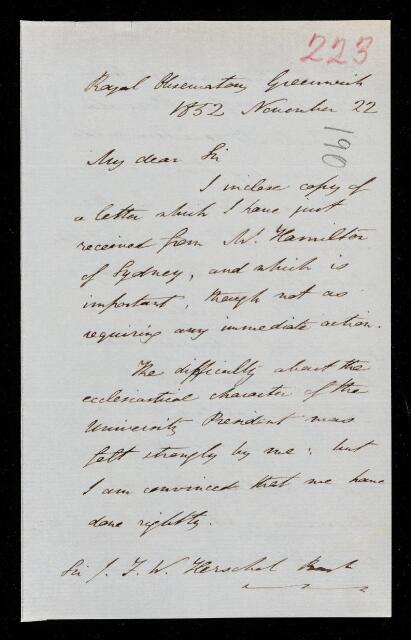 223
Royal Observatory Greenwich
1852 November 22
190
My dear Sir
I inclose copy of
a letter which I have just
received from Mr. Hamilton
of Sydney, and which is
important, though not as
requiring any immediate action.
The difficulty about the
ecclesiastical character of the
University President was
felt strongly by me: but
I am convinced that we have
done rightly.
Sir J. F. W. Herschel Bart